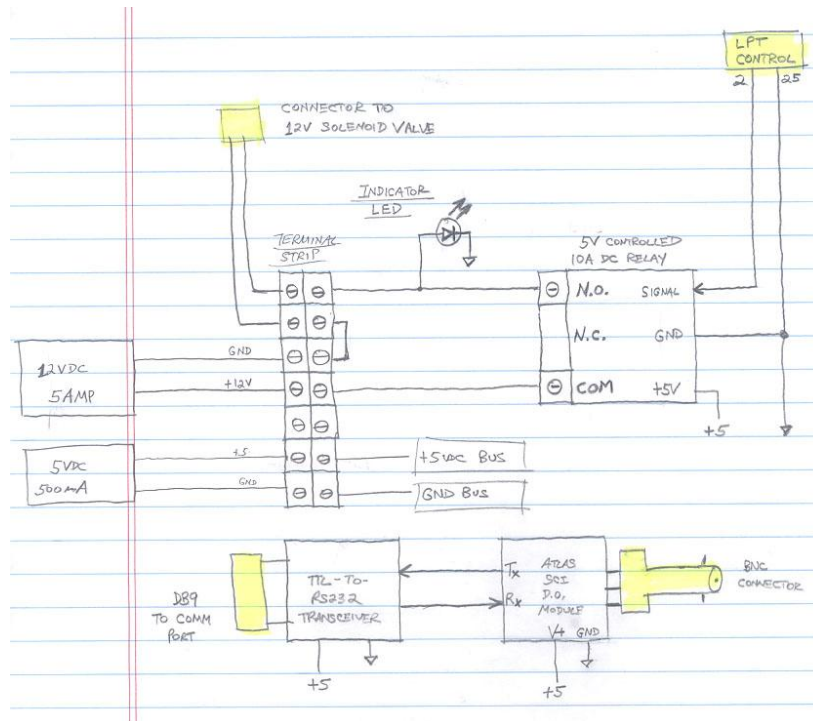 LPT
CONTROL
2 25
CONNECTOR TO
12V SOLENOID VALVE
INDICATOR
LED
TERMINAL
STRIP
5V CONTROLLED
10A DC RELAY
N.O. SIGNAL
N.C. GND
COM +5V
+5
12VDC
5AMP
GND
+12V
5VDC
500mA
+5
GND
+5VDC BUS
GND BUS
DB9
TO COMM
PORT
TTL-TO-
RS232
TRANSCEIVER
+5
Tx
Rx
ATLAS
SCI
D.O.
MODULE
V+ GND
+5
BNC
CONNECTOR